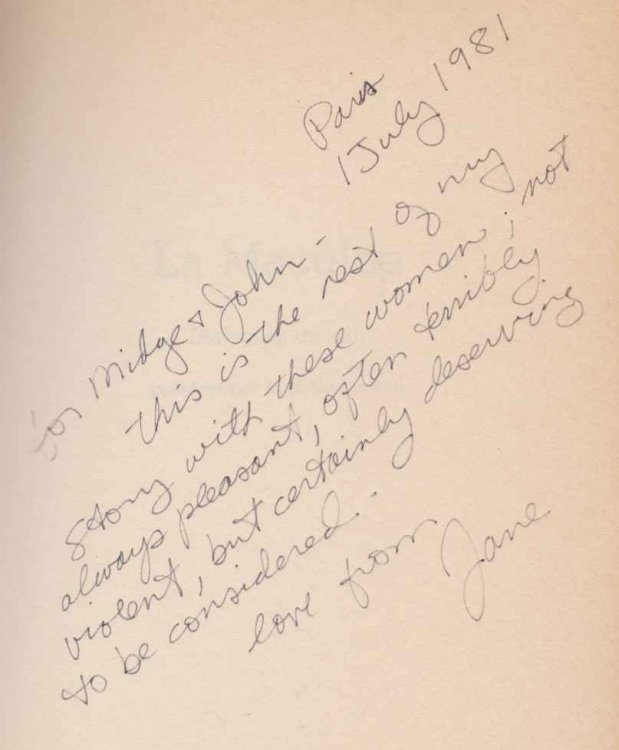 Paris
1 July 1981
for Midge & John -
this is the rest of my
story with these women; not
always pleasant, often terribly
violent, but certainly deserving
to be considered.
love from Jane